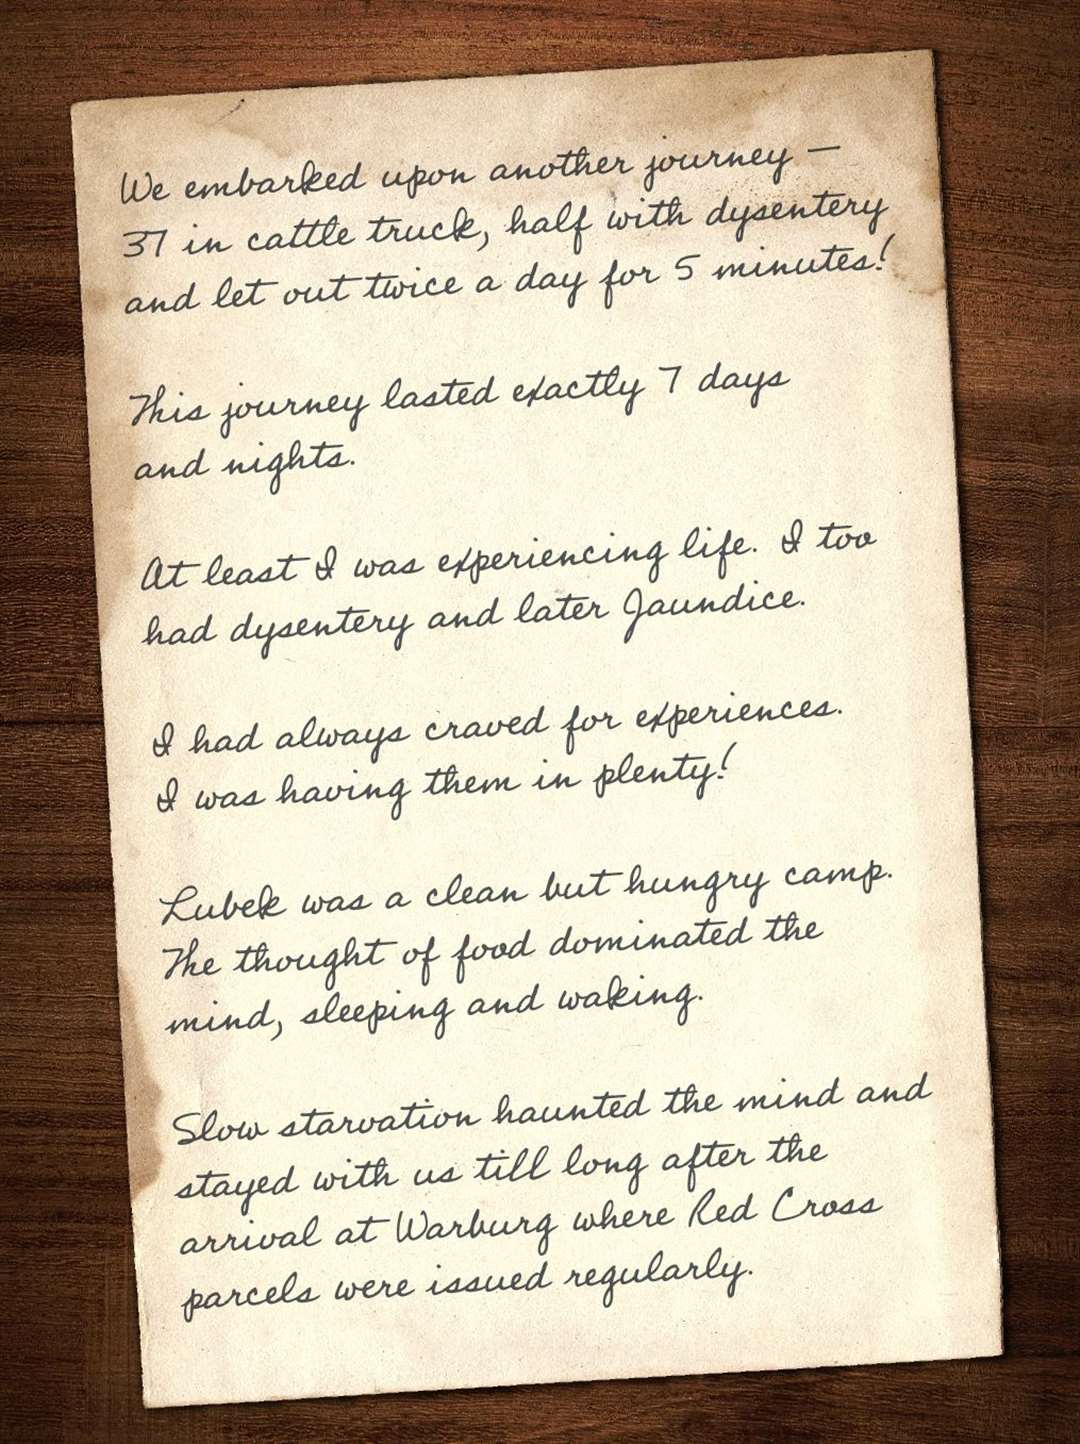 We embarked upon another journey –
37 in cattle truck, half with dysentery
and let out twice a day for 5 minutes!
This journey lasted exactly 7 days
and nights.
At least I was experiencing life. I too
had dysentery and later Jaundice.
I had always craved for experiences.
I was having them in plenty!
Lubek was a clean but hungry camp.
The thought of food dominated the
mind, sleeping and waking.
Slow starvation haunted the mind and
stayed with us till long after the
arrival at Warburg where Red Cross
parcels were issued regularly.